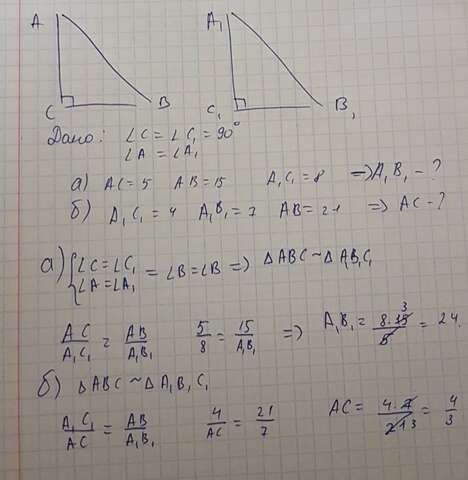 A A₁
C B C₁ B₁
Дано: ∠C = ∠C₁ = 90°
∠A = ∠A₁
а) AC = 5 AB = 15 A₁C₁ = 8 => A₁B₁ - ?
б) A₁C₁ = 4 A₁B₁ = 7 AB = 21 => AC - ?
а) {∠C = ∠C₁ ∠A = ∠A₁ = ∠B = ∠B => ΔABC ~ ΔA₁B₁C₁
AC/A₁C₁ = AB/A₁B₁ 5/8 = 15/A₁B₁ => A₁B₁ = 8·15/5 3 = 24.
б) ΔABC ~ ΔA₁B₁C₁
A₁C₁/AC = AB/A₁B₁ 4/AC = 21/7 AC = 4·7/21 3 = 4/3